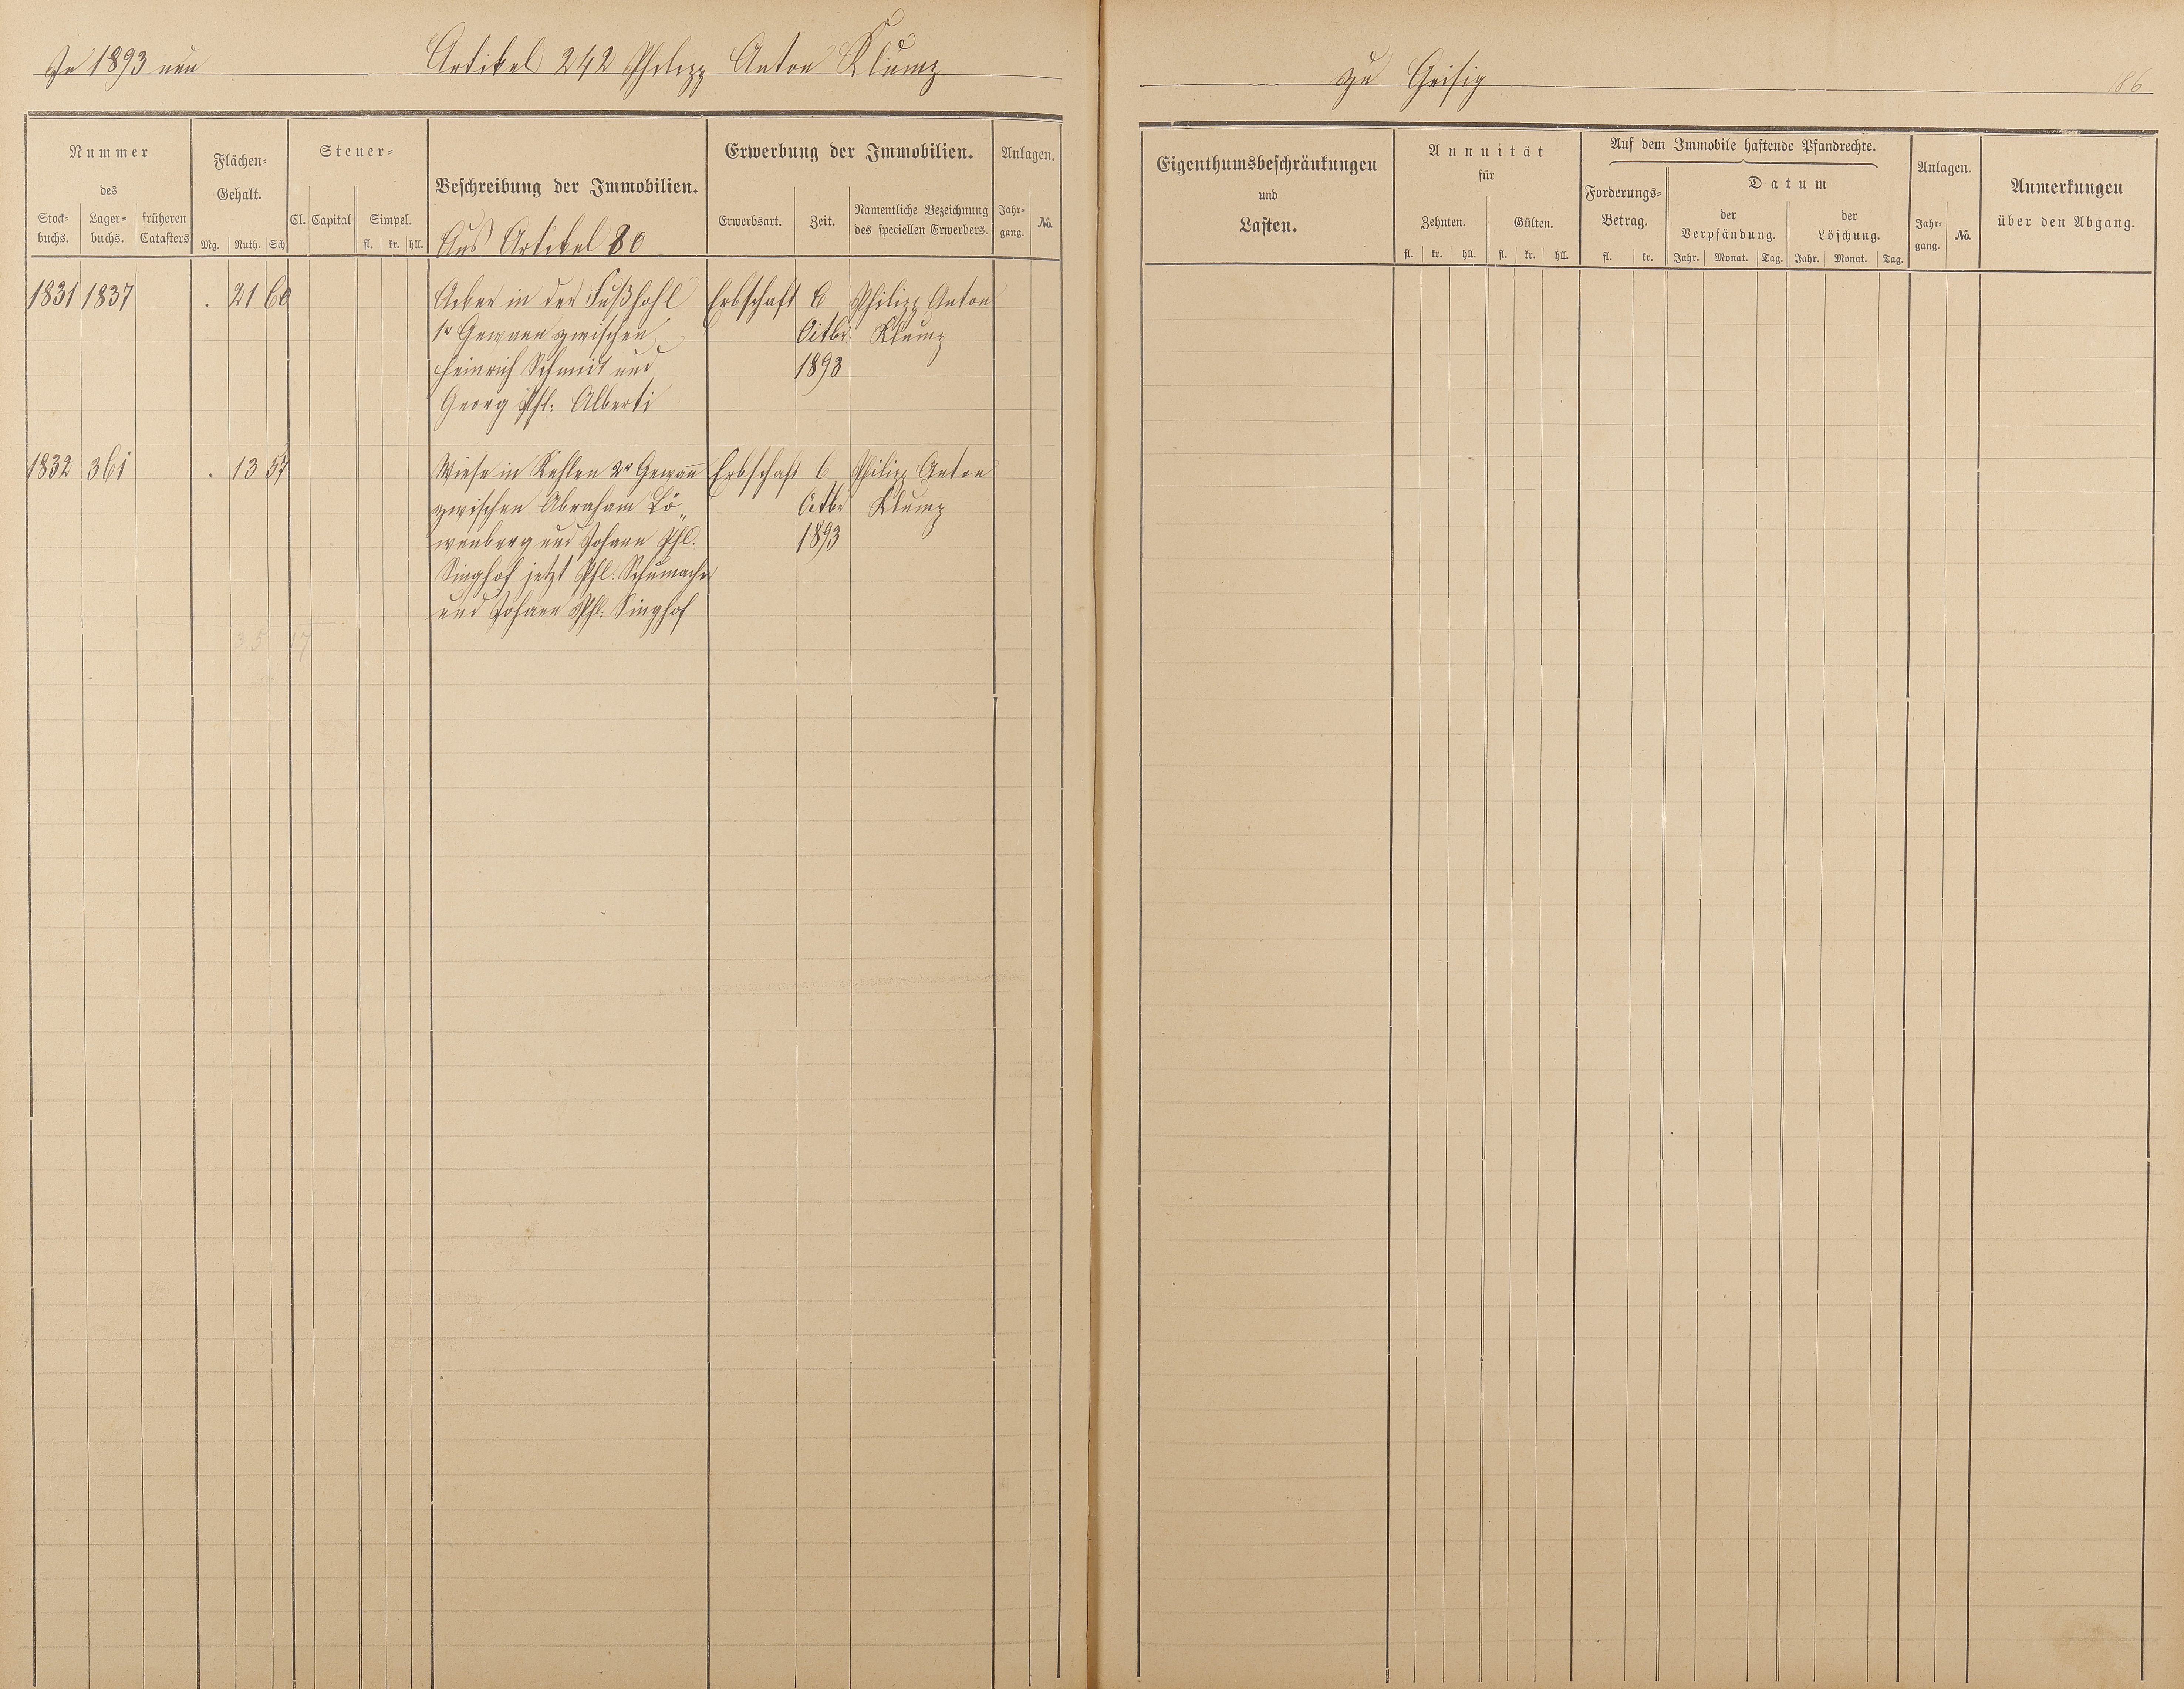 In 1893 neu Artikel 242 Philipp Anton Klump
zu Geisig 86
Nummer
des
Stock-buchs. Lager-buchs. früheren Catasters
Flächen-Gehalt.
Mg. Ruth. Sch
Steuer-
Cl. Capital Simpel.
fl. kr. hll.
Beschreibung der Immobilien.
Aus Artikel 80
Erwerbung der Immobilien.
Erwerbsart. Zeit. Namentliche Bezeichnung des speciellen Erwerbers.
Anlagen.
Jahr-gang. No.
Eigenthumsbeschränkungen
und
Lasten.
Annuität
für
Zehnten. Gülten.
fl. kr. hll. fl. kr. hll.
Auf dem Immobile haftende Pfandrechte.
Forderungs-Betrag.
fl. kr.
Datum
der Verpfändung. der Löschung.
Jahr. Monat. Tag. Jahr. Monat. Tag.
Anlagen.
Jahr-gang. No
Anmerkungen
über den Abgang.
1831 1837 . 21 60 Acker in der Fußhohl Erbschaft 6 Philipp Anton
1r Gewann zwischen Octbr. Klump
Heinrich Schmidt und 1893
Georg Phl. Alberti
1832 361 . 13 57 Wiese in Kehlen 2r Gewann Erbschaft 6 Philipp Anton
zwischen Abraham Lö„ Octbr Klump
wenberg und Johann Phl. 1893
Singhof jetzt Phl. Schumacher
und Johann Phl. Singhof
35 17